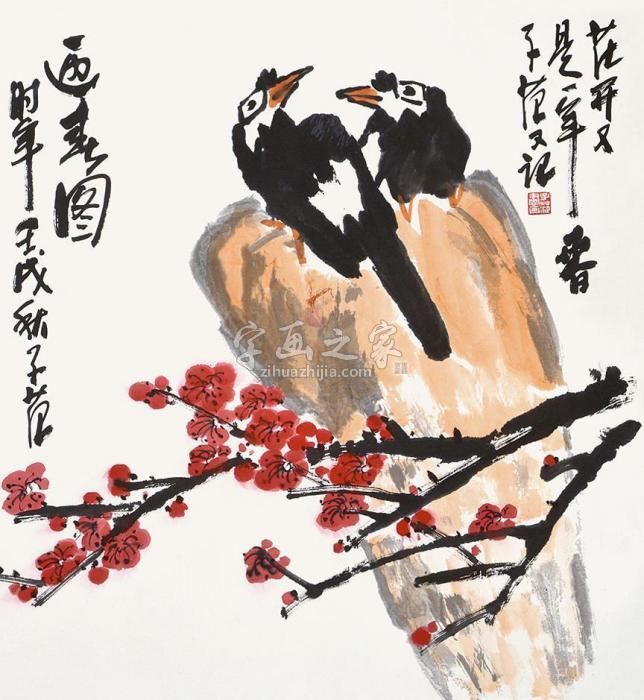 花开又
是一年春
子范又记
迎春图
时年壬戌秋子范
字画之家
zihuazhijia.com